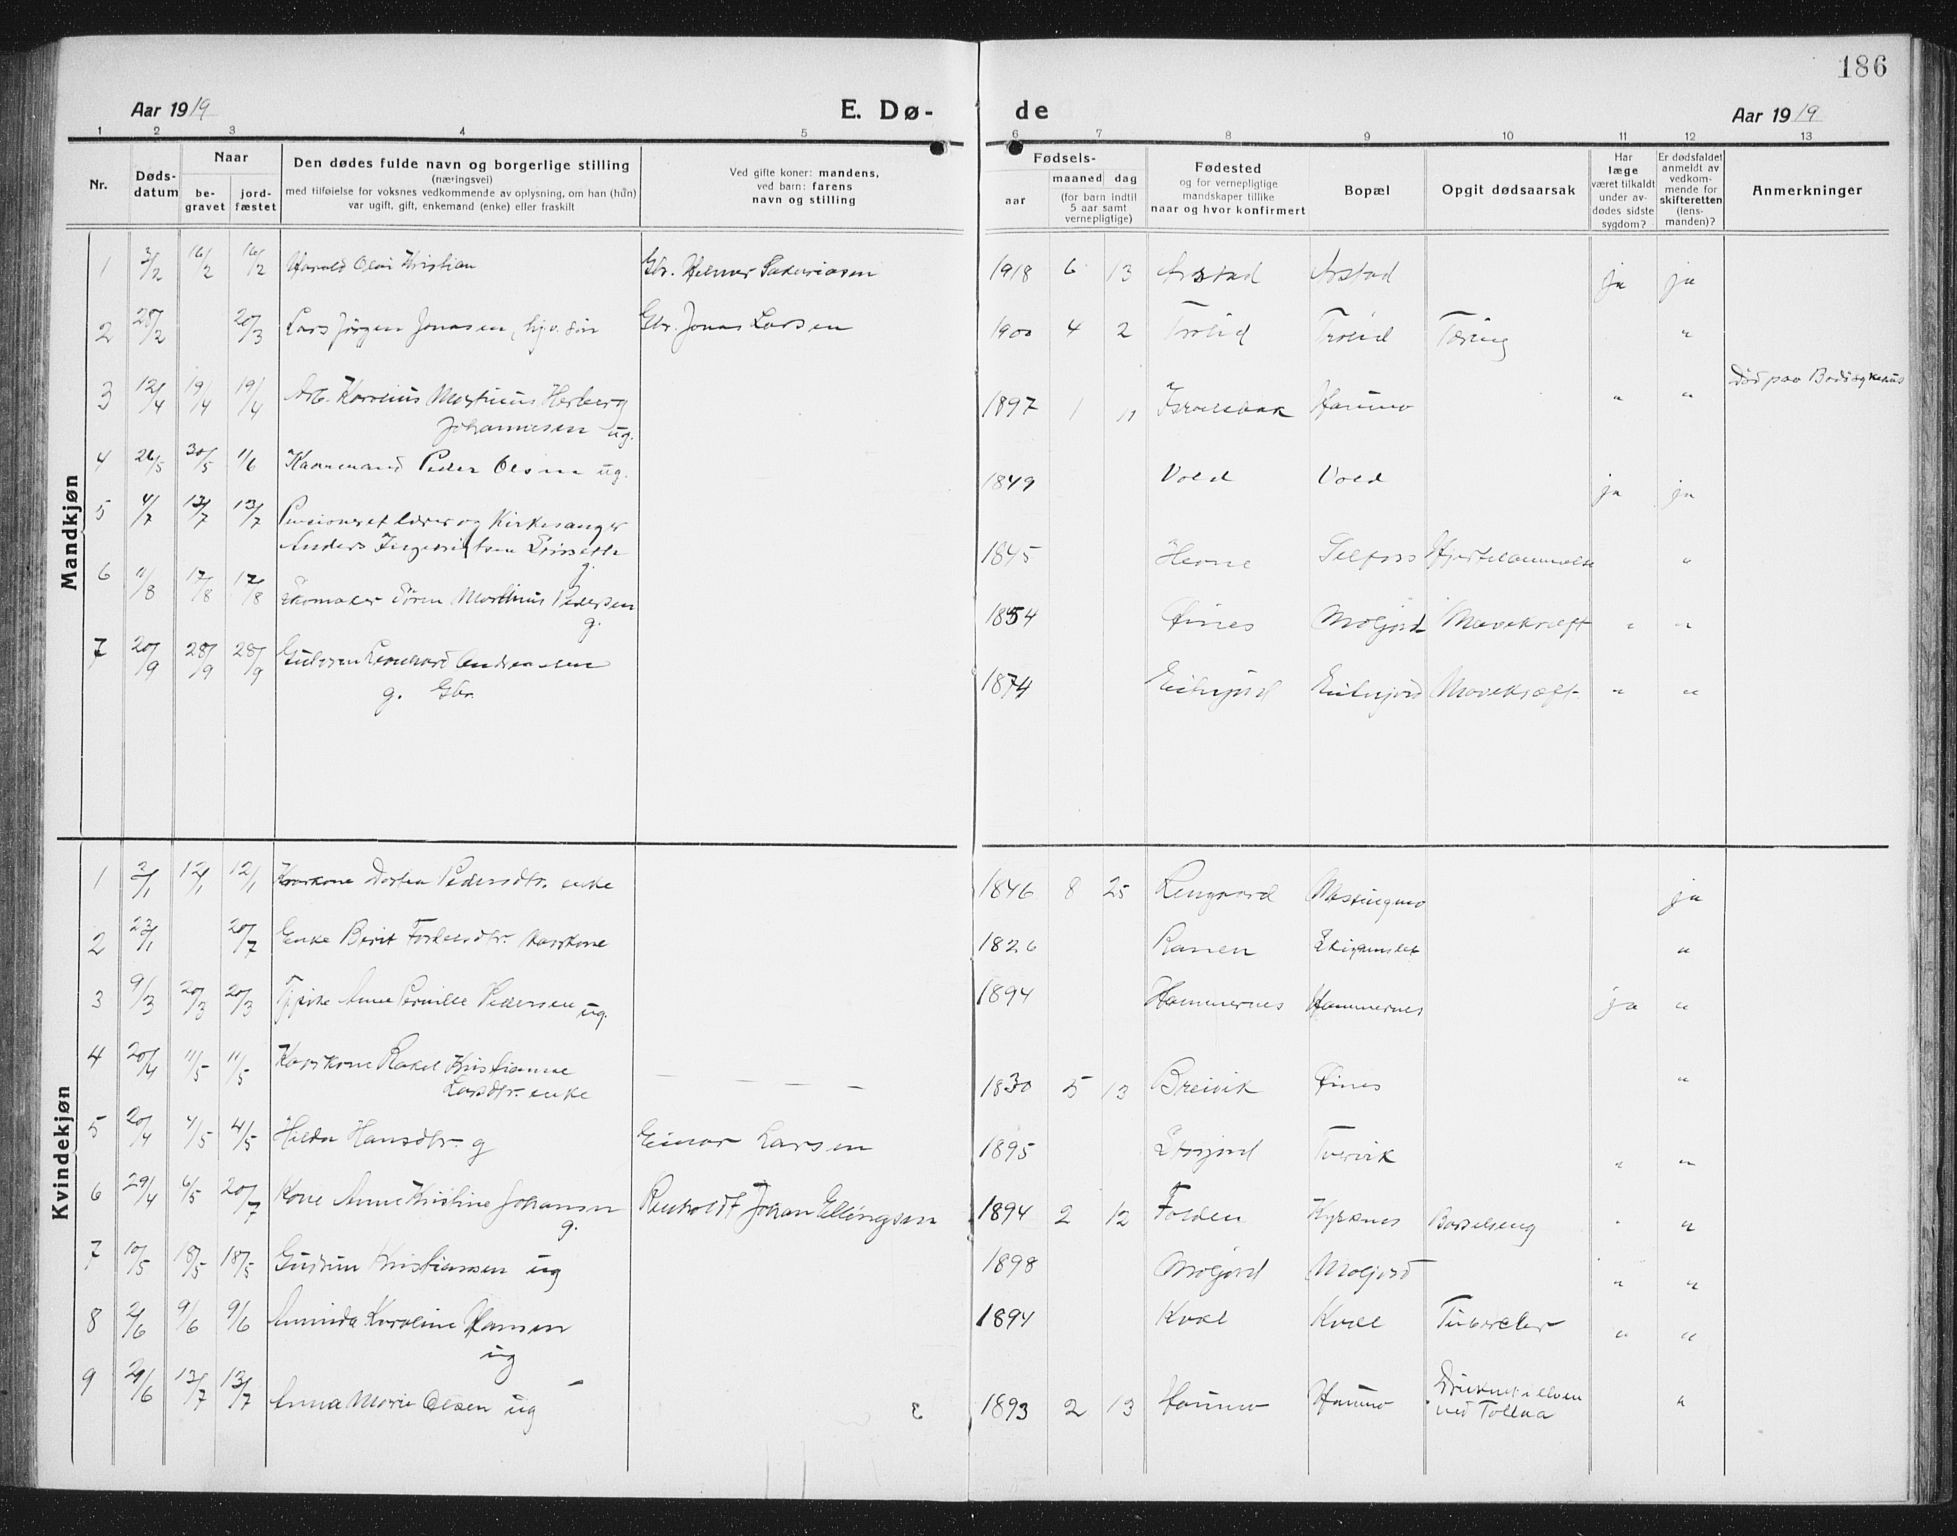 186
Aar 1919 E. Dø- de Aar 1919
1 2 3 4 5 6 7 8 9 10 11 12 13
Nr. Døds-datum Naar be-gravet jord-fæstet Den dødes fulde navn og borgerlige stilling (næringsvei) med tilføielse for voksnes vedkommende av oplysning, om han (hun) var ugift, gift, enkemand (enke) eller fraskilt Ved gifte koner: mandens, ved barn: farens navn og stilling Fødsels- aar maaned dag (for barn indtil 5 aar samt vernepligtige) Fødested og for vernepligtige mandskaper tillike naar og hvor konfirmert Bopæl Opgit dødsaarsak Har læge været tilkaldt under av-dødes sidste sygdom? Er dødsfaldet anmeldt av vedkom-mende for skifteretten (lens-manden)? Anmerkninger
Mandkjøn
1 3/2 16/2 16/2 Harald Olai Kristian Gbr. Helmer Sakariasen 1918 6 13 Arstad Arstad ja ja
2 28/2 20/3 Lars Jørgen Jonasen, hjv. søn Gbr. Jonas Larsen 1900 4 2 Trolid Trolid Tæring "
3 12/4 19/4 19/4 Arb. Karelius Martinus Herberg 1897 1 11 Israelsbak Haumo " " Død paa Bodø sykehus
Johannesen ug.
4 26/5 30/5 1/6 Kaarmand Peder Olsen ug. 1849 Vold Vold ja ja
5 4/7 13/7 13/7 Pensioneret lærer og Kirkesanger
Anders Ingebrigtsen 1845 Hevne Selfors Hjertelammelse "
g.
6 11/8 17/8 17/8 Skomaker Søren Marthinus Pedersen 1854 Øines Moljord Mavekræft " "
g.
7 20/9 28/9 28/9 Leonhard Andreassen 1874 Eiterjord Eiterjord Mavekræft " "
g. Gbr.
Kvindekjøn
1 3/1 12/1 12/1 Kaarkone Dortea Pedersdtr. enke 1846 8 25 Lengaard Kvæssingmo ja
2 23/1 20/7 Enke Berit Torkelsdtr. Kaarkone 1826 Ranen "
3 9/3 20/3 20/3 Tjpike Anne Pernille Pedersen ug. 1894 Hammernes Hammernes ja "
4 20/4 11/5 11/5 Kaarkone Rakel Kristianne
Larsdtr. enke 1830 5 13 Breivik Øines "
5 20/4 4/5 4/5 Hilda Hansdtr. g Einar Larsen 1895 Storjord Tvervik " "
6 29/4 6/5 20/7 Kone Anne Kristine Johansen Renholdt Johan Ellingsen 1894 2 12 Folden Kyrknes Barselseng " "
g.
7 10/5 18/5 18/5 Gudrun Kristiansen ug 1898 Moljord Moljord " "
8 2/6 9/6 9/6 Aminda Karoline Hansen 1894 Kvæl Kvæl Tuberkler " "
ug
9 29/6 13/7 13/7 Anna Marie Olsen ug 1893 2 13 Haumo Haumo Druknet i elven "
ved Tollaa